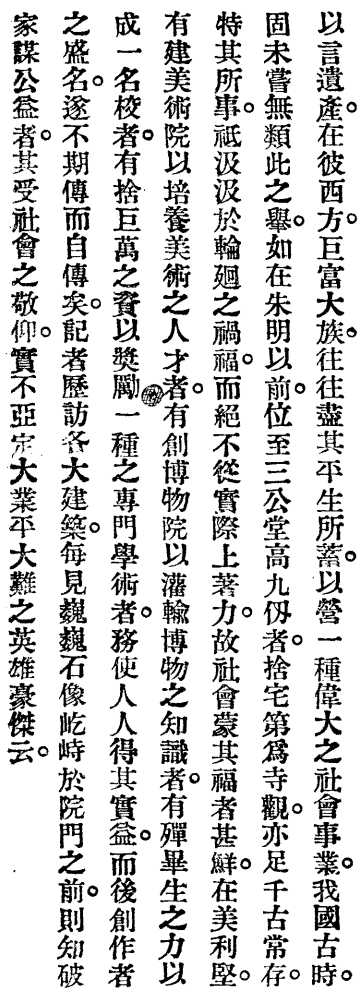 以言遺產。在彼西方。巨富大族。往往盡其平生所蓄。以營一種偉大之社會事業。我國古時。
固未嘗無類此之舉。如在朱明以前。位至三公堂高九仭者。捨宅第爲寺觀。亦足千古常存。
特其所事。祇汲汲於輪廻之禍福。而絕不從實際上著力。故社會蒙其福者甚鮮。在美利堅。
有建美術院以培養美術之人才者。有創博物院以灌輸博物之知識者。有殫畢生之力以
成一名校者。有捨巨萬之資以奬勵一種之專門學術者。務使人人得其實益。而後創作者
之盛名。遂不期傳而自傳矣。記者歷訪各大建築。每見巍巍石像屹峙於院門之前。則知破
家謀公益者。其受社會之敬仰。實不亞定大業平大難之英雄豪傑云。